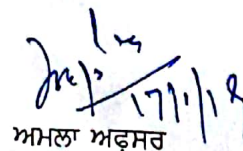 17/1/18
ਅਮਲਾ ਅਫ਼ਸਰ